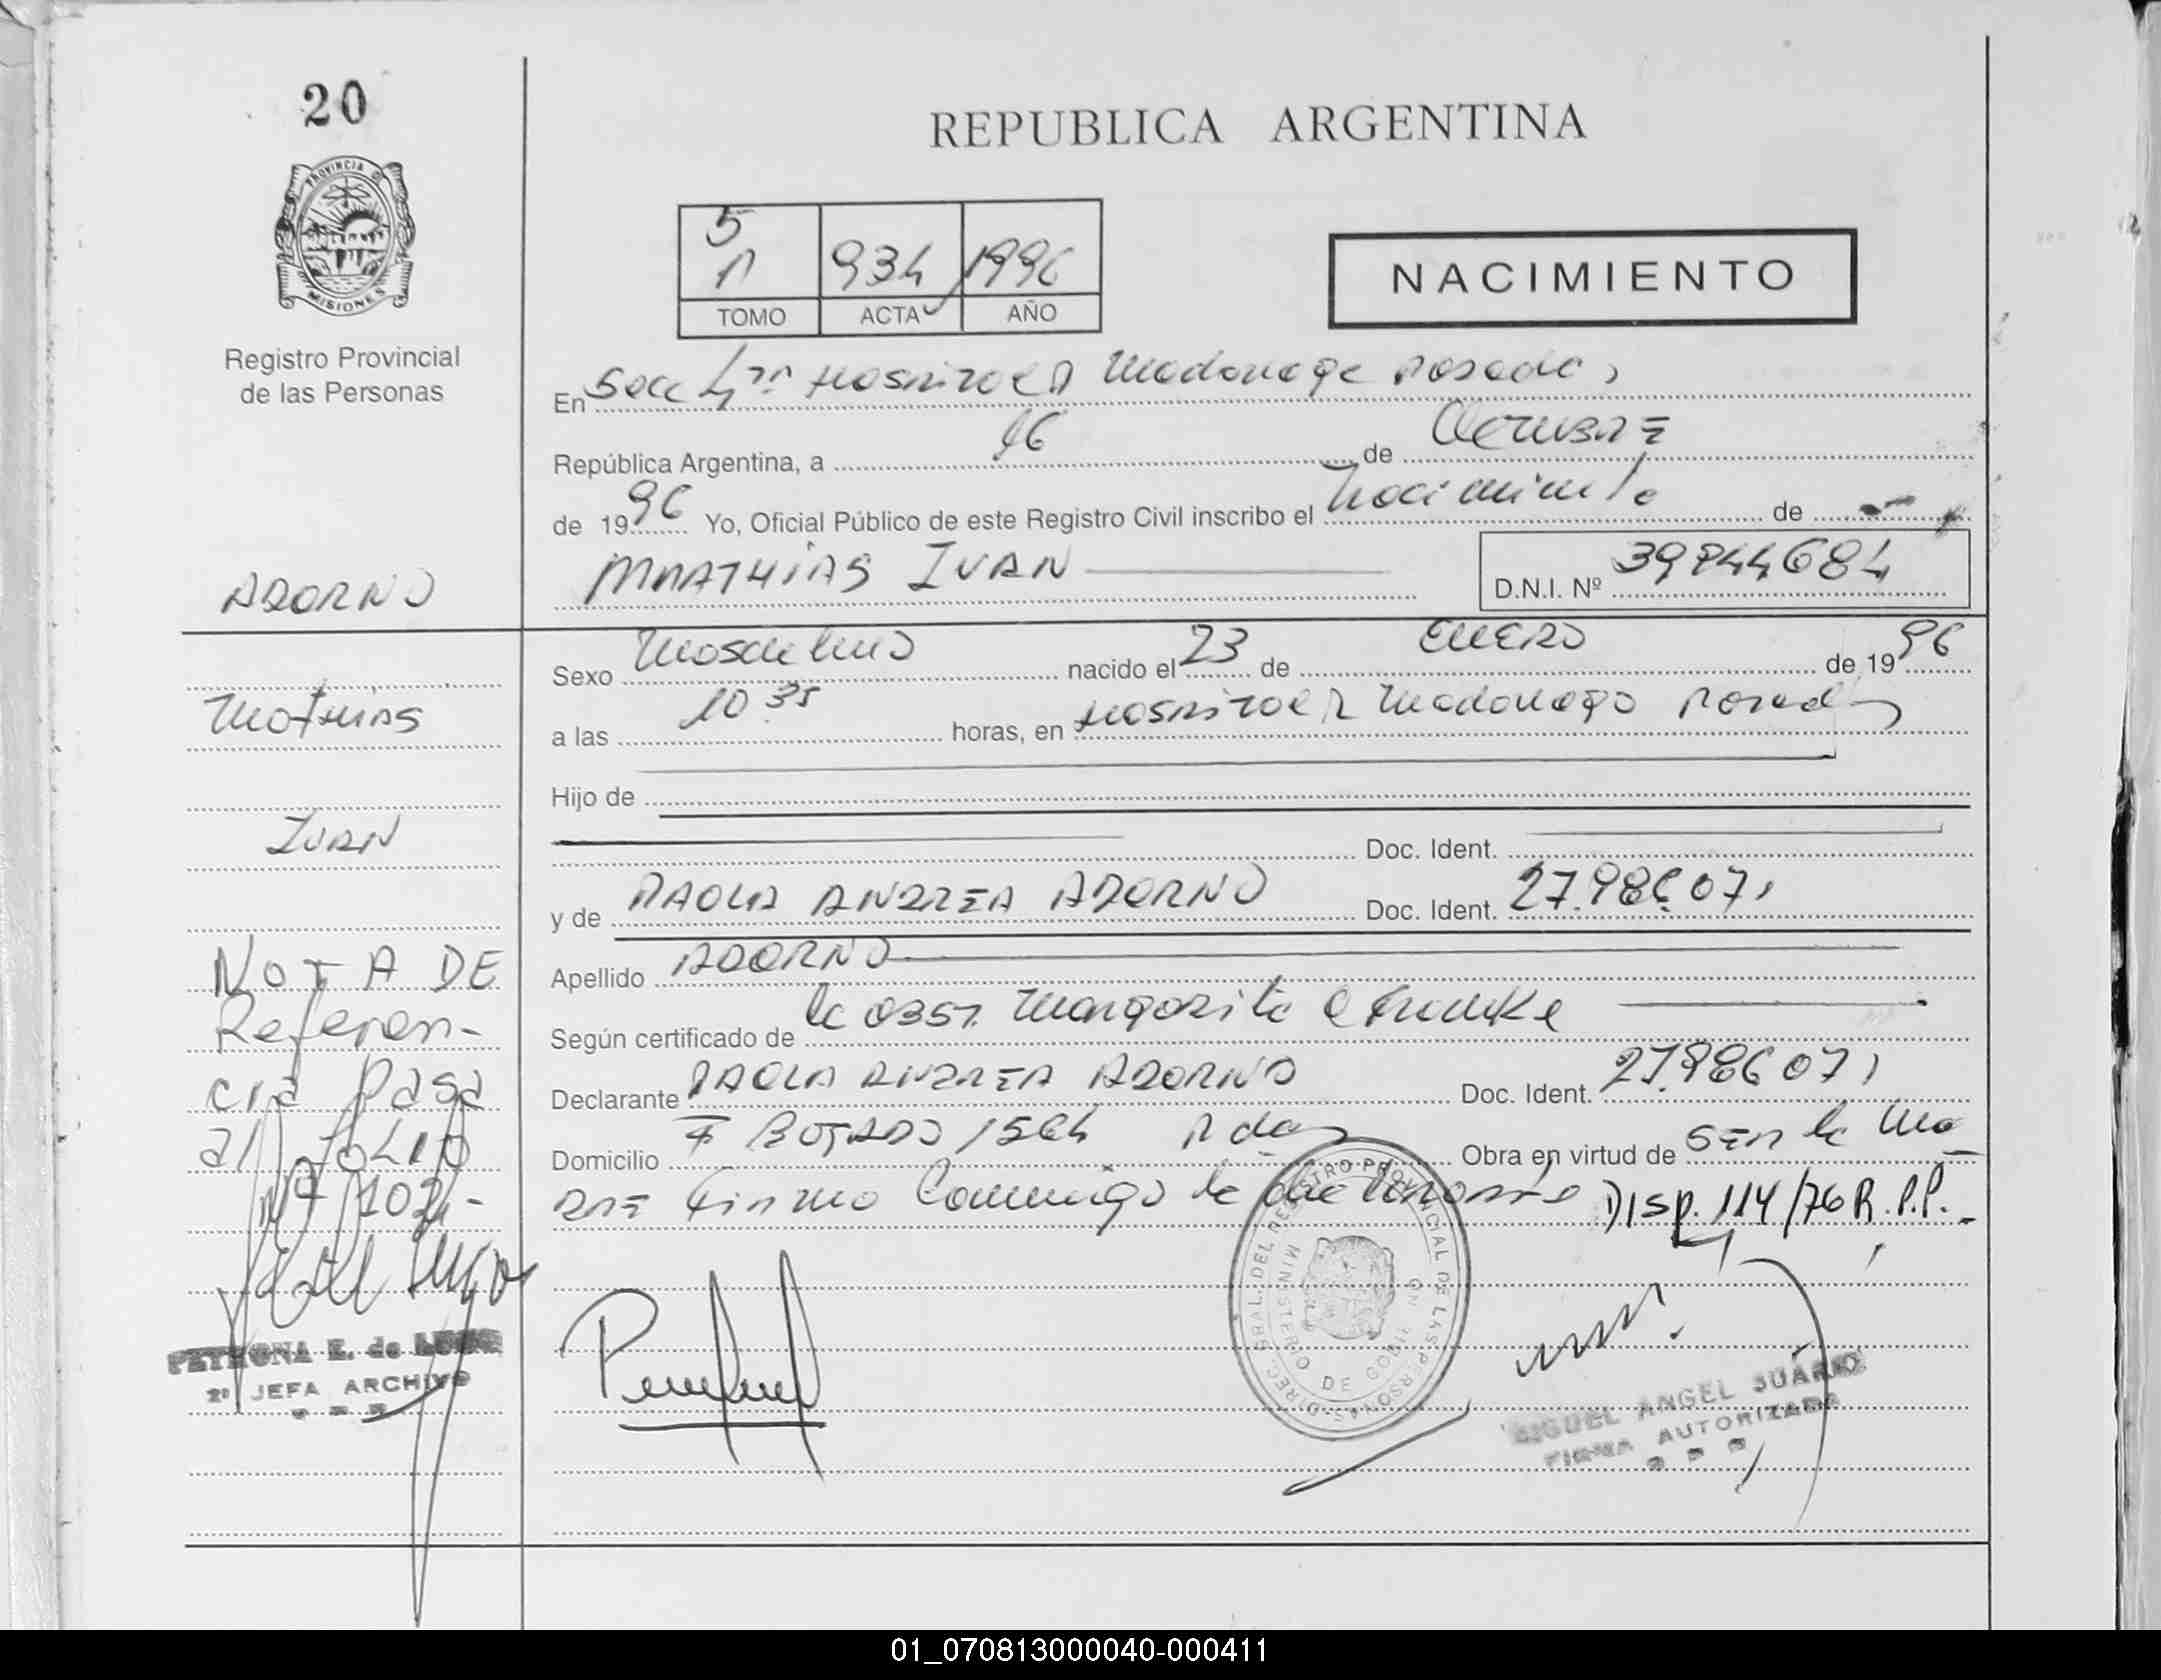 20
PROVINCIA DE
MISIONES
Registro Provincial
de las Personas
REPUBLICA ARGENTINA
5
934 1996
TOMO ACTA AÑO
NACIMIENTO
En Secc Hospital R Madariaga Posadas
República Argentina, a 16 de Octubre
de 1996 Yo, Oficial Público de este Registro Civil inscribo el Nacimiento de
ADORNO
MATHIAS IVAN D.N.I. Nº 39744684
Sexo Masculino nacido el 23 de ENERO de 1996
Mathias
a las 10 35 horas, en Hospital R Madariaga Posadas
Hijo de
IVAN
Doc. Ident.
y de PAOLA ANDREA ADORNO Doc. Ident. 27.986.071
Apellido ADORNO
Según certificado de la Obst. Margarita
Declarante PAOLA ANDREA ADORNO Doc. Ident. 27.986 071
Domicilio 1564 Pdas Obra en virtud de ser la Ma
dre Firma Conmigo la declarante DISP. 114/76 R.P.P.-
NOTA DE
Referen-
cia Pasa
al FOLIO
Nº 102.-
PETRONA E. de LUGO
2º JEFA ARCHIVO
DIREC. GRAL. DEL REGISTRO PROVINCIAL DE LAS PERSONAS
MINISTERIO DE GOBIERNO
MIGUEL ANGEL SUÁREZ
FIRMA AUTORIZADA
01_070813000040-000411